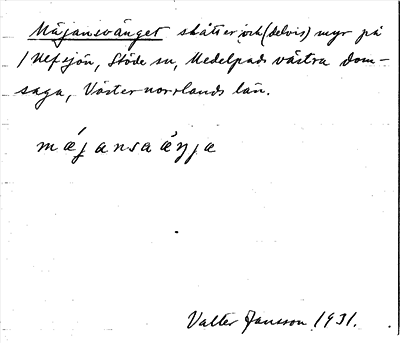 Måjansvänget slåtter och (delvis) myr på
1 Nefsjön, Stöde sn, Medelpads västra dom-
saga, Västernorrlands län.
måjansaäŋja
Valter Jansson 1931.